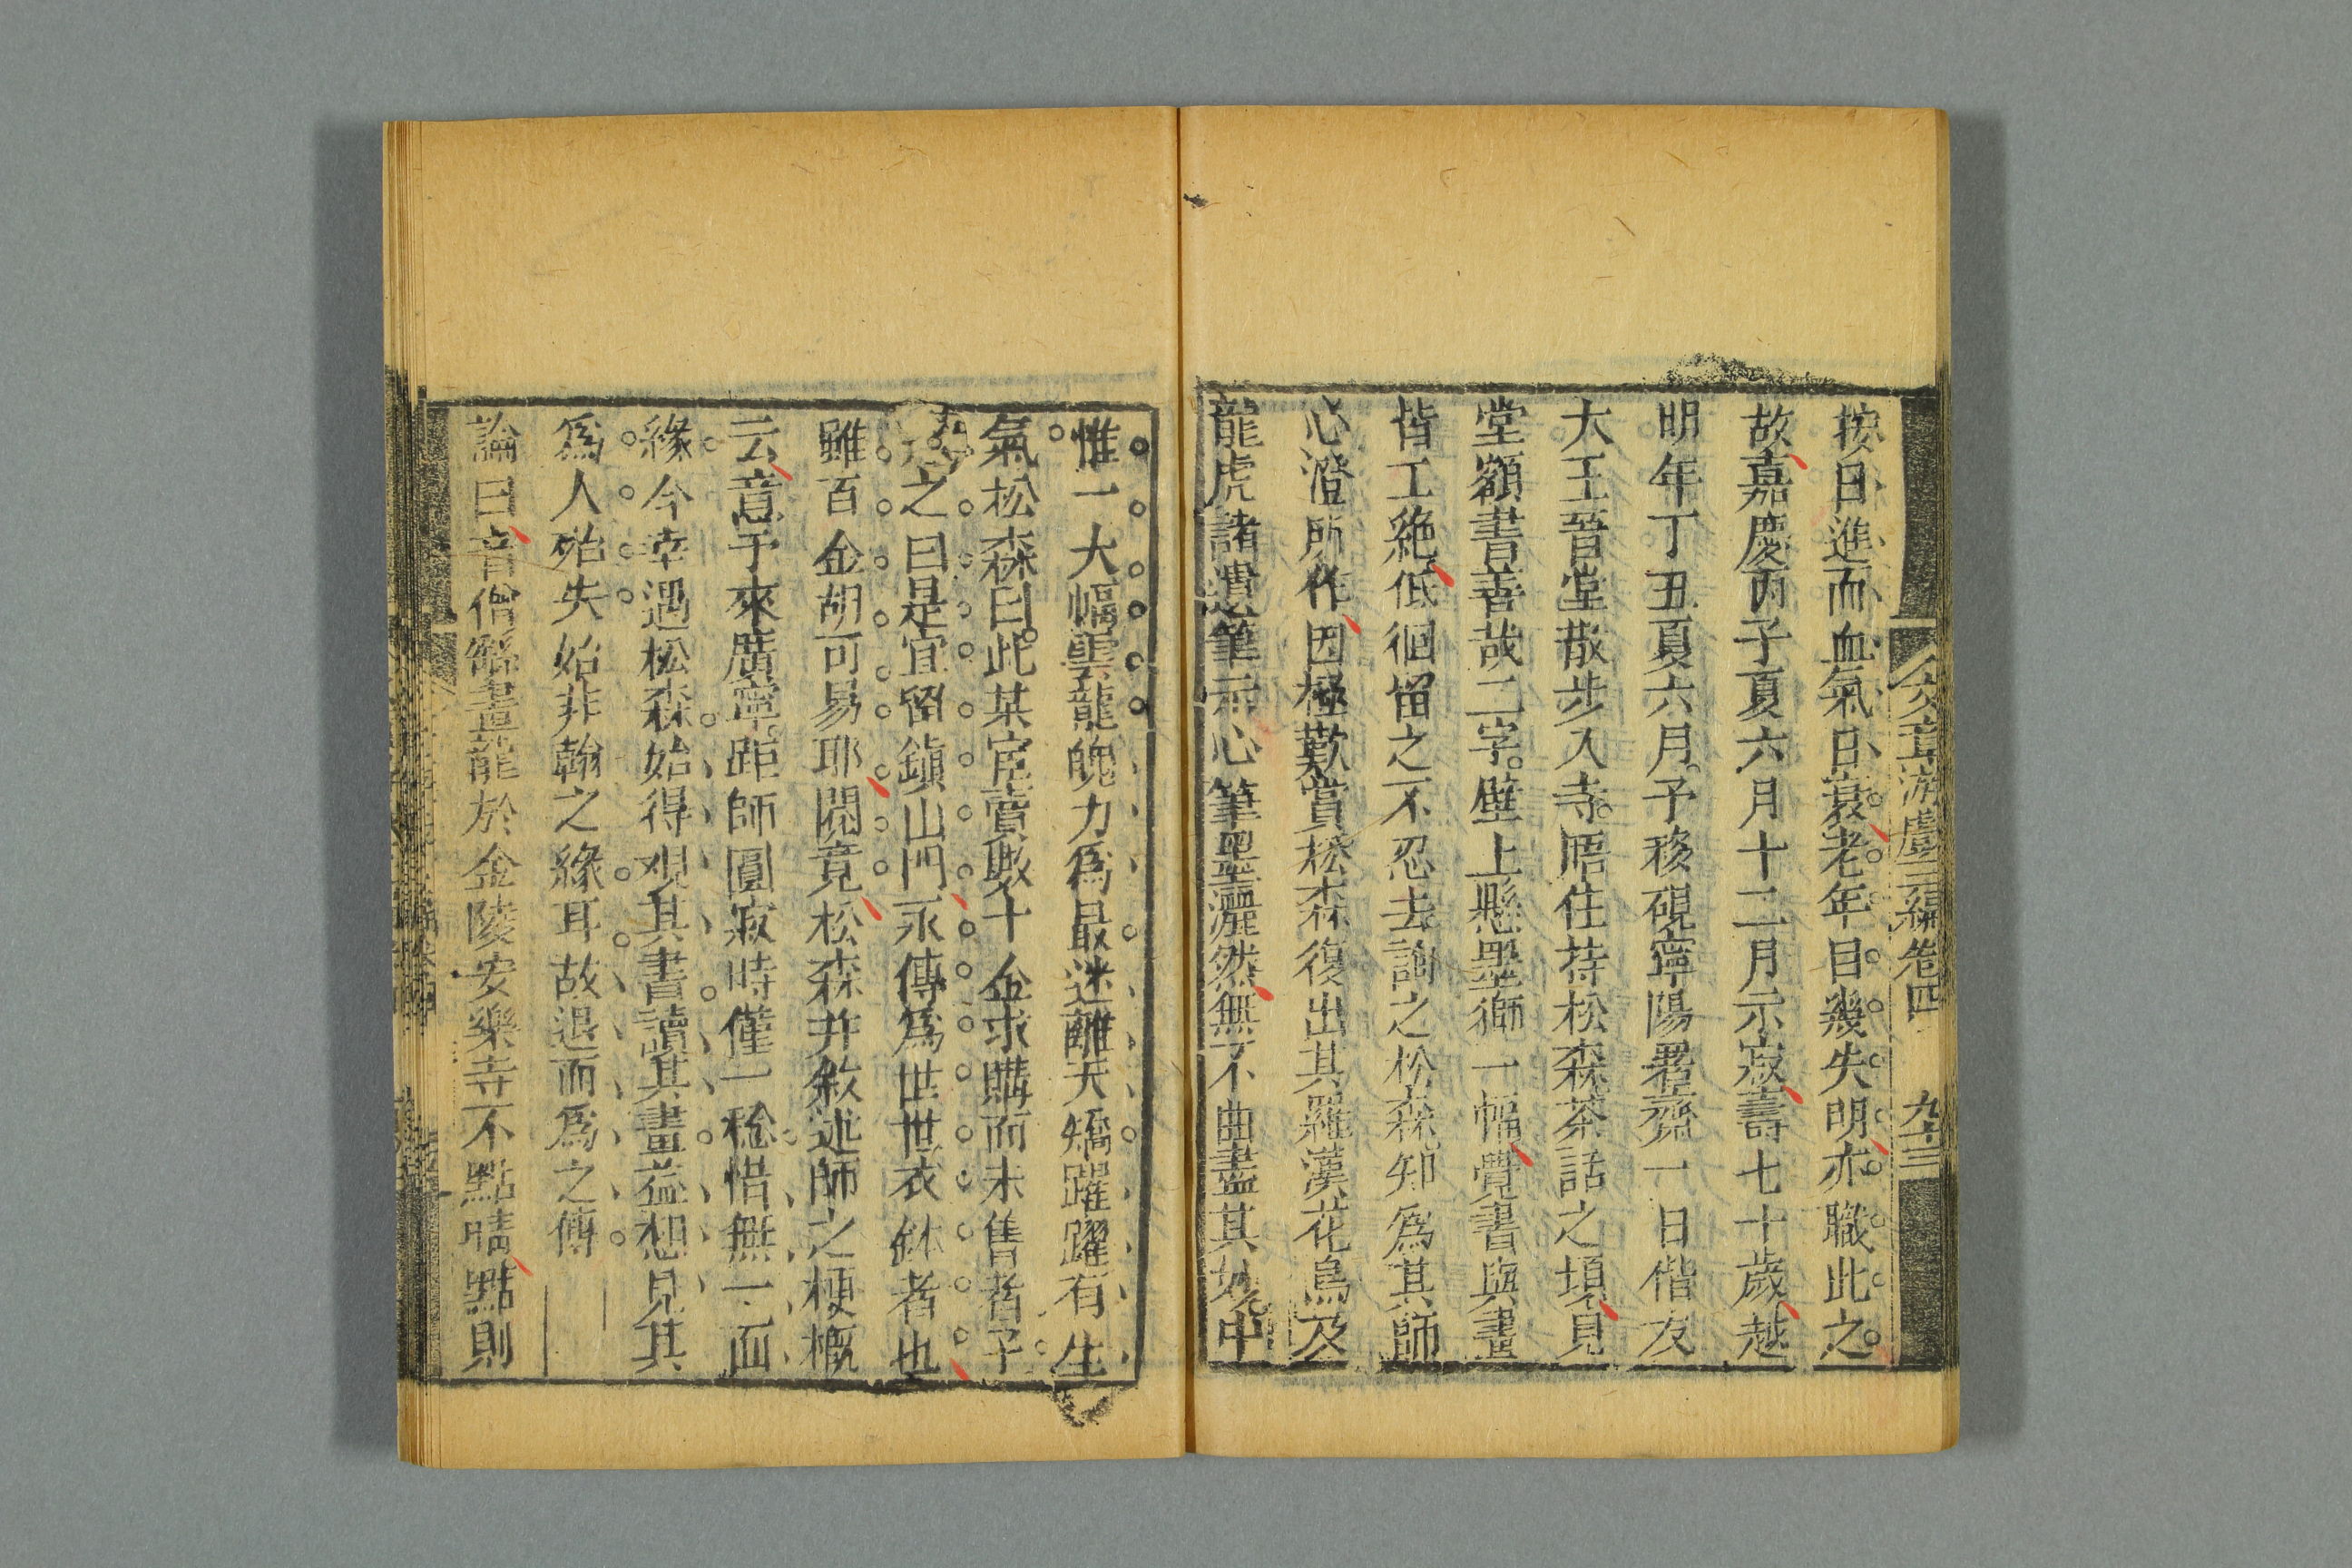 文章游戲三編卷四 九十三
按日進而血氣日衰老年目幾失明亦職此之
故嘉慶丙子夏六月十二月示寂壽七十歲越
明年丁丑夏六月予移硯寧陽署齋一日偕友
大王晉堂散步入寺晤住持松森茶話之頃見
堂額書善哉二字壁上懸墨獅一幅覺書與畫
皆工絶低徊留之不忍去詢之松森知爲其師
心澄所作因極歎賞松森復出其羅漢花鳥及
龍虎諸遺筆示心筆墨灑然無不曲盡其妙中
惟一大幅雲龍魄力爲最迷離夭矯躍躍有生
氣松森曰此某宦賣數十金求購而未售者予
之曰是宜留鎮山門永傳爲世世衣鉢者也
雖百金胡可易耶閱竟松森并敘述師之梗概
云意予來廣寧距師圓寂時僅一稔惜無一面
緣今幸遇松森始得觀其書讀其畫益想見其
爲人殆失始非翰之緣耳故退而爲之傳
論曰昔僧繇畫龍於金陵安樂寺不點睛點則